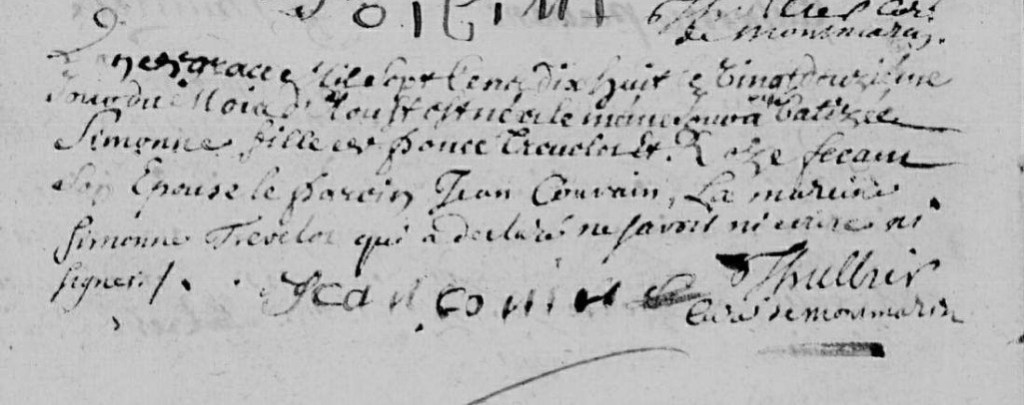 Thullier Curé
de monmarin.
L'an de grace Mil sept Cent dix huit le Vingt deuzième
Jour du Mois d'Aoust est née et le même Jour a été Batisée
Simonne fille de Ponce Trevelot et Roze
son Epouse le parain Jean Couvain, La mareine
simonne Trevelot qui a declaré ne savoir ni ecrire ni
signer /.
Jean
Thullier
Curé de monmarin